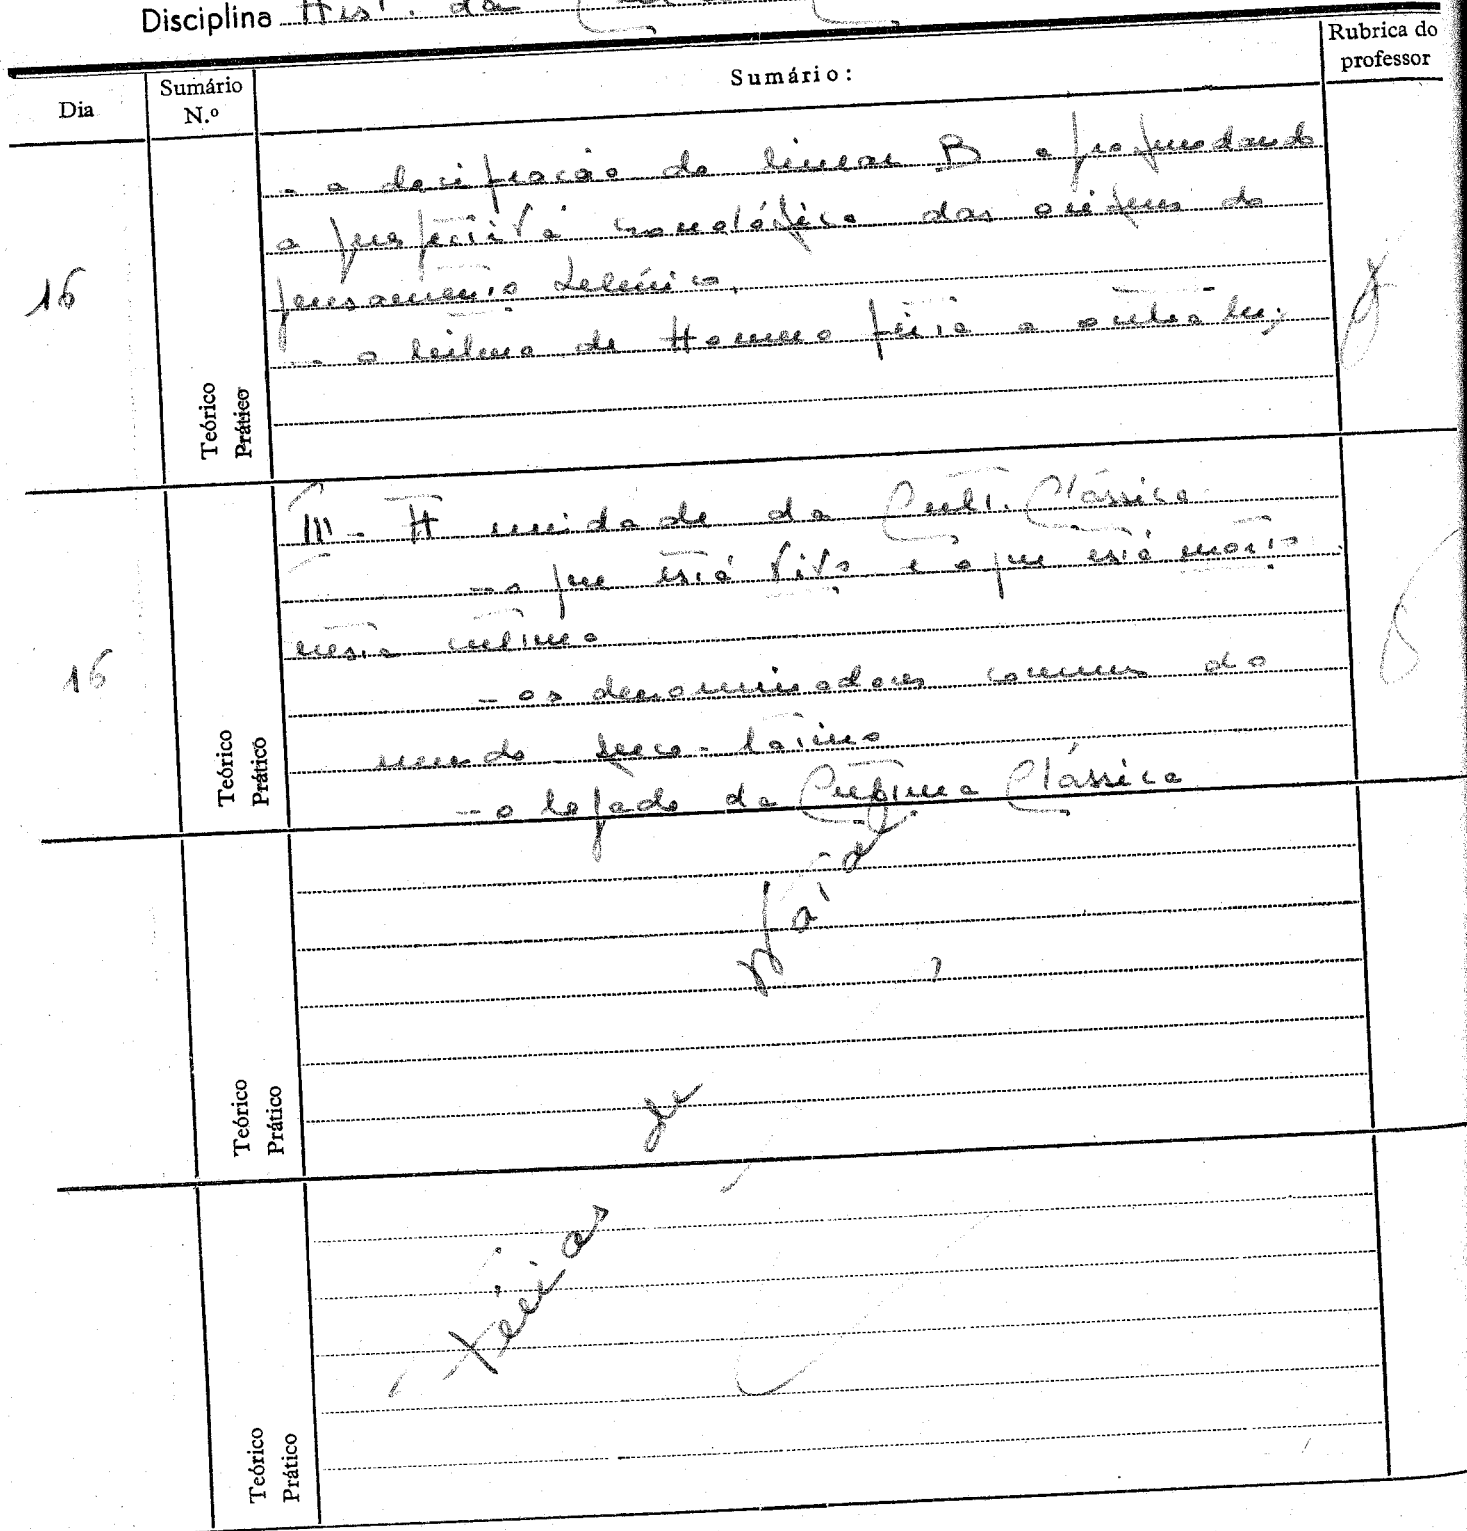 Disciplina Hist. da
Dia
Sumário N.º
Sumário:
Rubrica do professor
16
- a decifração do linear B aprofundando
a perspectiva cronológica das origens do
pensamento helénico.
- a leitura de Homero feita a outra luz;
Teórico
Prático
16
III - A unidade da Cult. Clássica
- o que está vivo e o que está morto
nesta cultura
- os denominadores comuns do
mundo greco-latino
- o legado da Cultura Clássica
Teórico
Prático
Férias de Natal
Teórico
Prático
Teórico
Prático